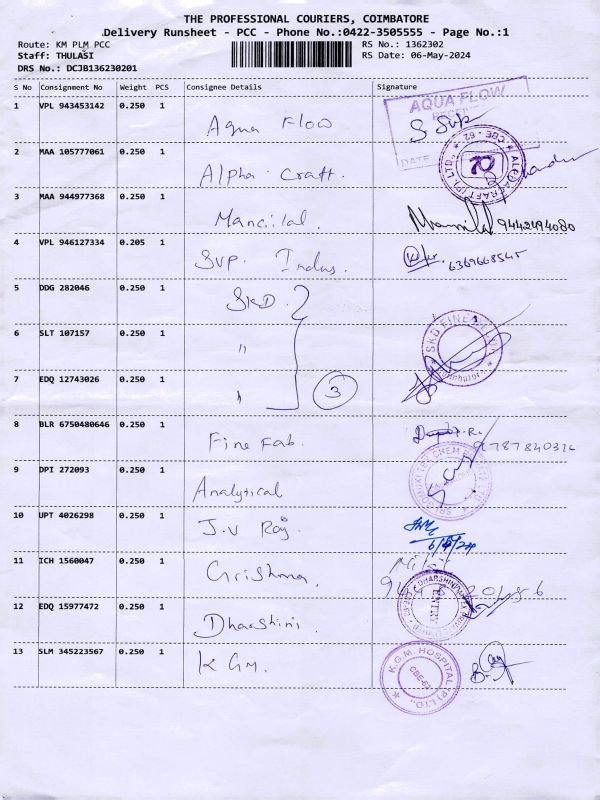 THE PROFESSIONAL COURIERS, COIMBATORE
Delivery Runsheet - PCC - Phone No.:0422-3505555 - Page No.:1
Route: KM PLM PCC
RS No.: 1362302
Staff: THULASI
RS Date: 06-May-2024
DRS No.: DCJB136230201
S No Consignment No Weight PCS Consignee Details Signature
1 VPL 943453142 0.250 1 Aqua Flow
AQUA FLOW
DATE
2 MAA 105777061 0.250 1 Alpha Craft.
3 MAA 944977368 0.250 1 Mancilal. 9442494080
4 VPL 946127334 0.205 1 Svp. Indus. 6369668545
5 DDG 282046 0.250 1 SKD.
6 SLT 107157 0.250 1 "
7 EDQ 12743026 0.250 1 " 3
8 BLR 6750480646 0.250 1 Fine Fab.
9 DPI 272093 0.250 1 Analytical
10 UPT 4026298 0.250 1 J.V Raj.
11 ICH 1560047 0.250 1 Grishma.
12 EDQ 15977472 0.250 1 Dharshini.
ENTRY
13 SLM 345223567 0.250 1 K GM.
K.G.M. HOSPITAL (P) LTD.,